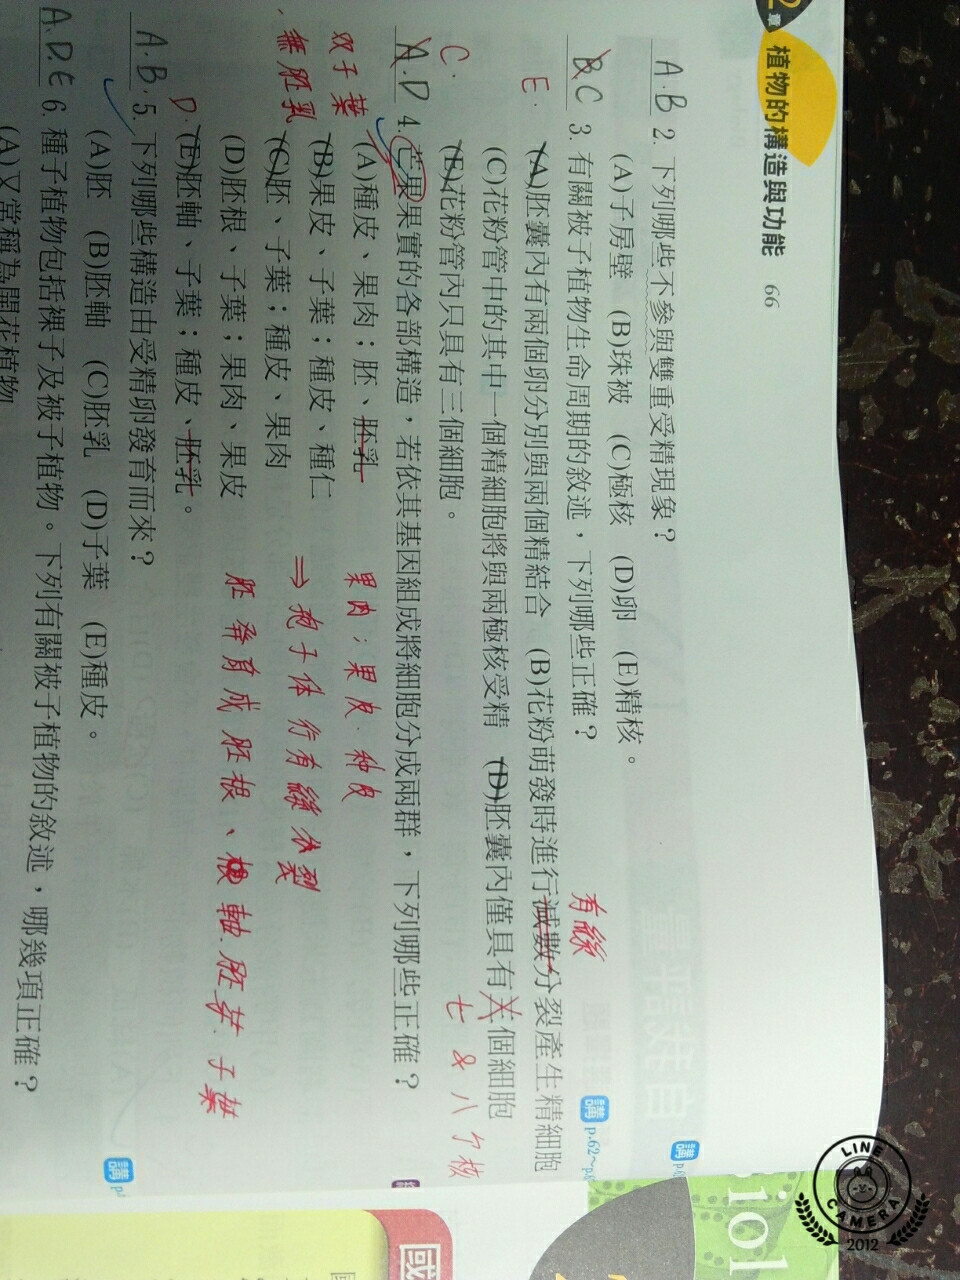 2 章 植物的構造與功能 66
A.B 2. 下列哪些不參與雙重受精現象？
講 p.6
(A)子房壁 (B)珠被 (C)極核 (D)卵 (E)精核。
B.C 3. 有關被子植物生命周期的敘述，下列哪些正確？
講 p.62~p.6
有絲
E. (A)胚囊內有兩個卵分別與兩個精結合 (B)花粉萌發時進行減數分裂產生精細胞
(C)花粉管中的其中一個精細胞將與兩極核受精 (D)胚囊內僅具有八個細胞
七 & 八个核
(E)花粉管內只具有三個細胞。
C.
A.D 4. 芒果果實的各部構造，若依其基因組成將細胞分成兩群，下列哪些正確？
(A)種皮、果肉；胚、胚乳
双子葉
無胚乳
果肉；果皮、种皮
(B)果皮、子葉；種皮、種仁
⇒ 孢子体行有絲分裂
(C)胚、子葉；種皮、果肉
(D)胚根、子葉；果肉、果皮
胚發育成胚根、胚軸.胚芽.子葉
(E)胚軸、子葉；種皮、胚乳。
D
A.B. 5. 下列哪些構造由受精卵發育而來？
(A)胚 (B)胚軸 (C)胚乳 (D)子葉 (E)種皮。
講 p.
A.D.E 6. 種子植物包括裸子及被子植物。下列有關被子植物的敘述，哪幾項正確？
(A)又常稱為開花植物
iol
國
LINE CAMERA 2012